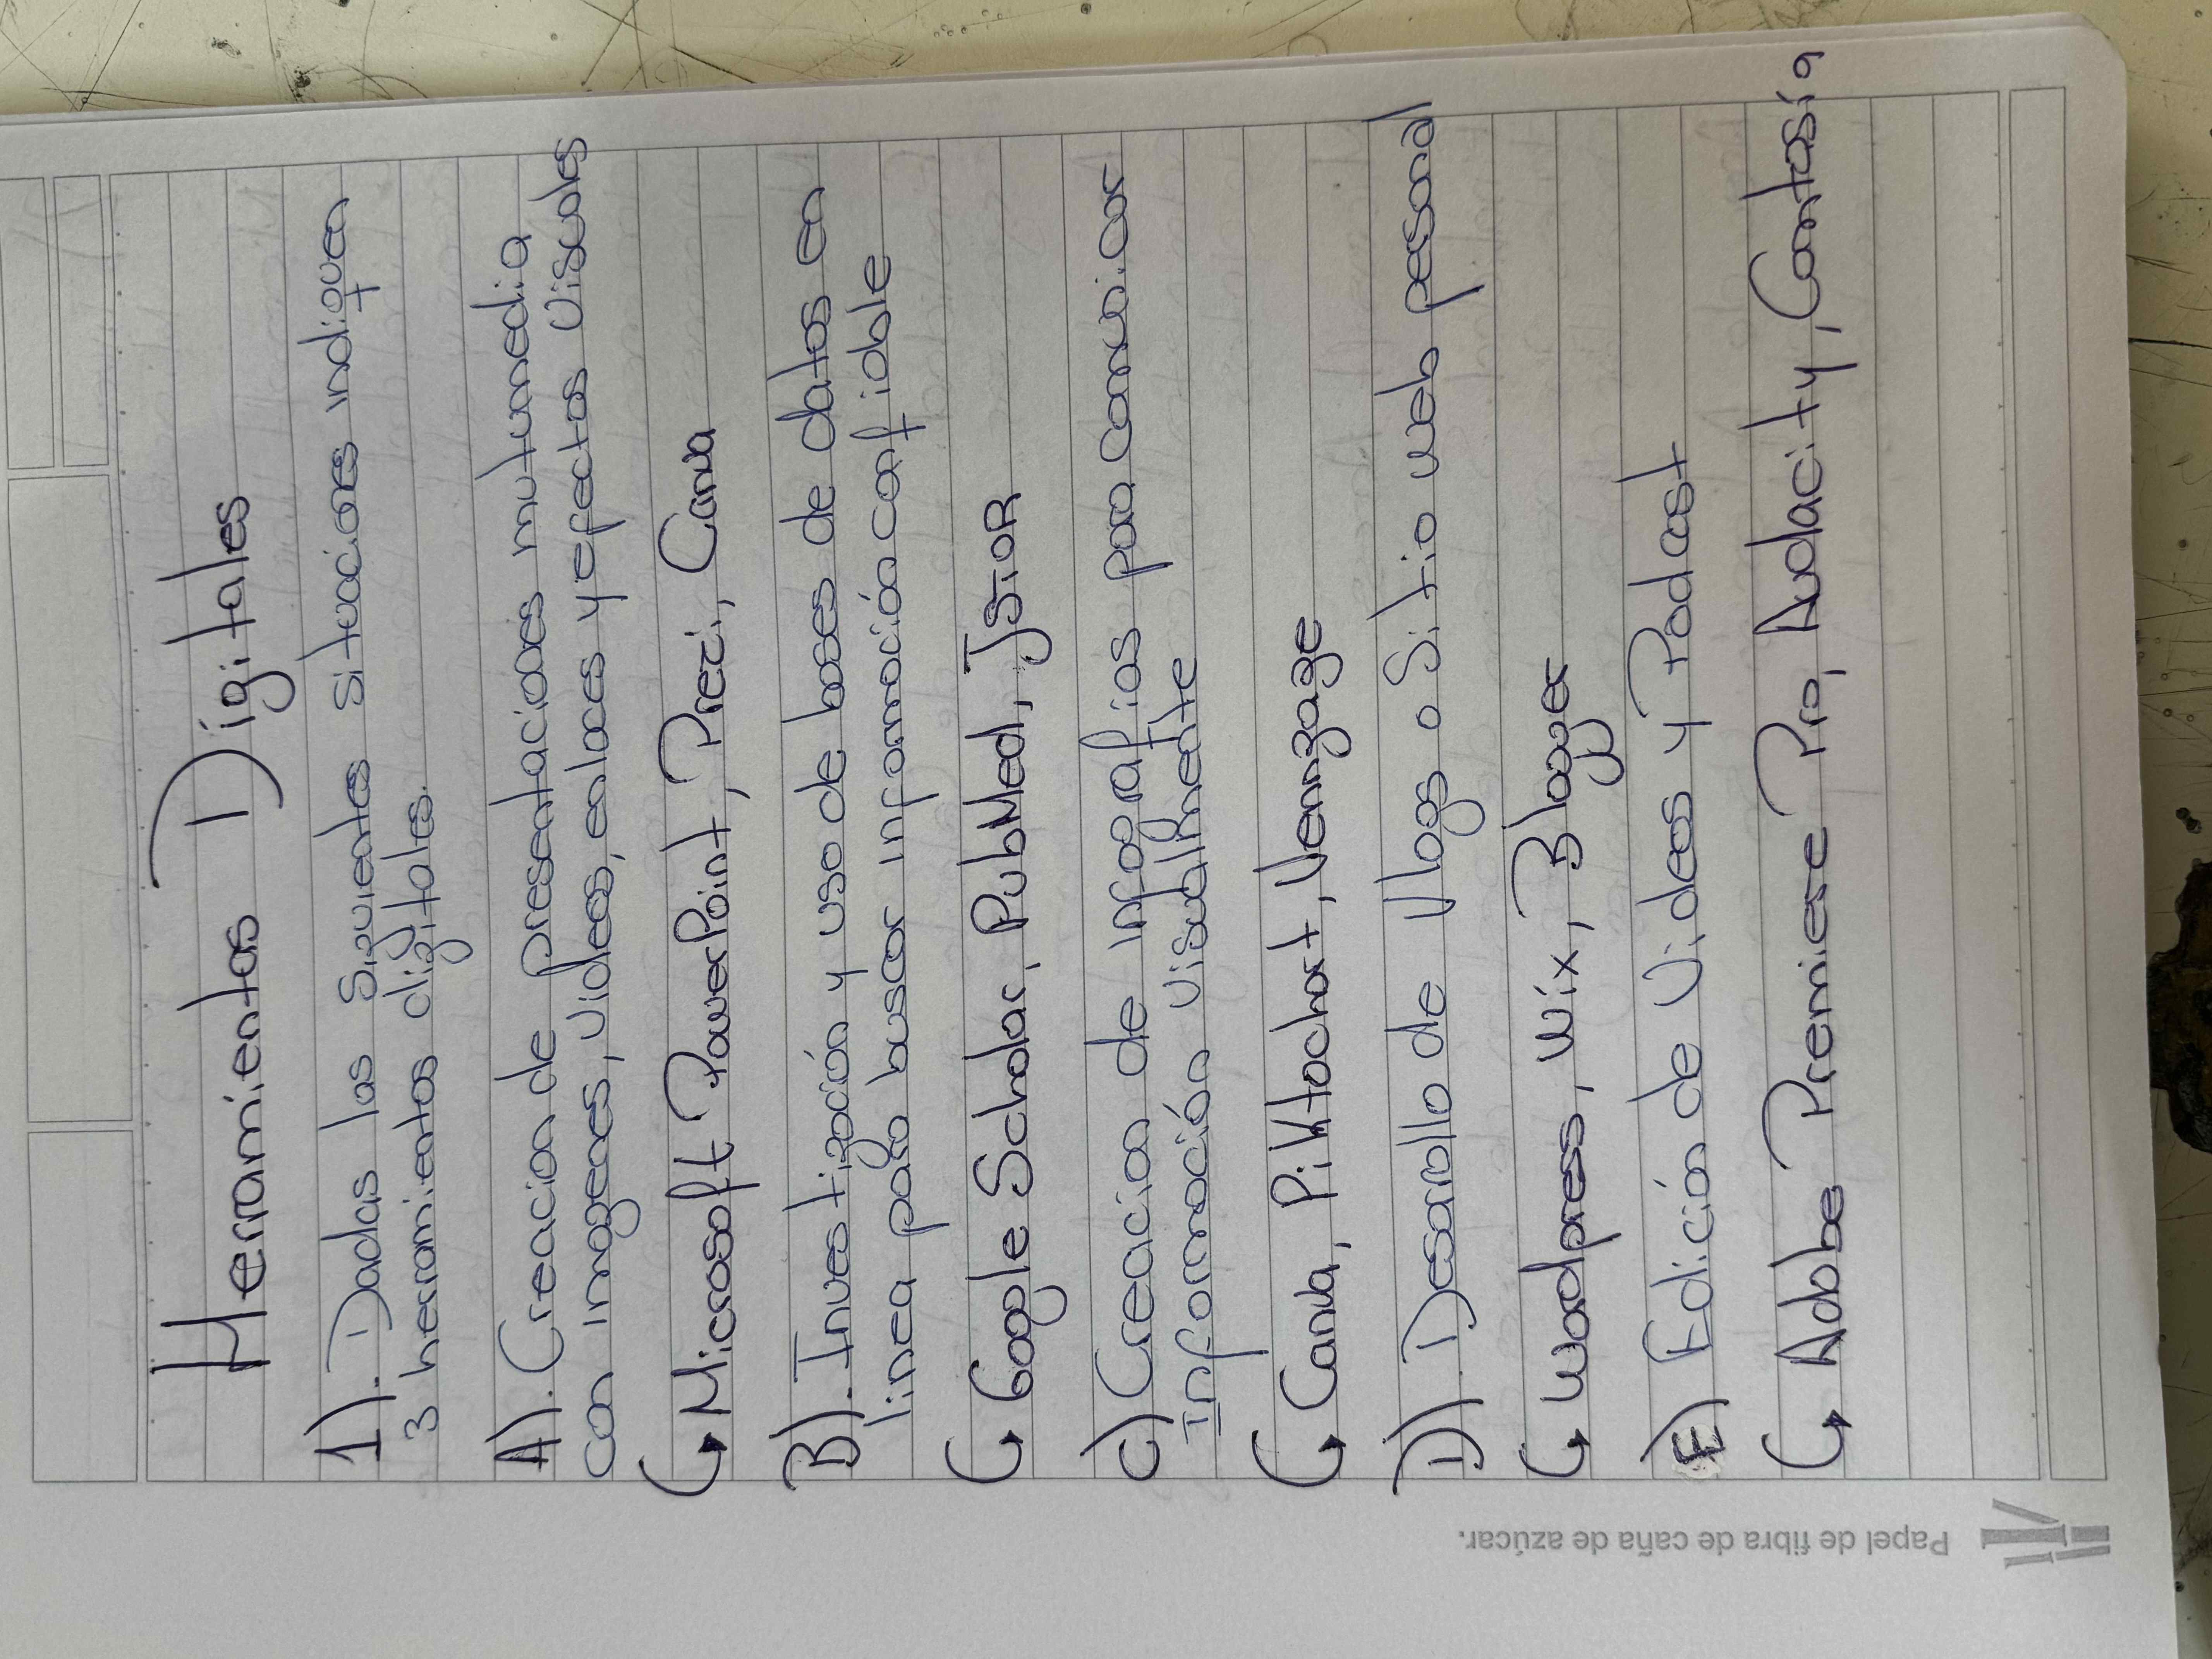 Herramientas Digitales
1). Dadas las siguientes situaciones indiquen
3 herramientas digitales.
A). Creacion de presentaciones mutumedia
con imagenes, videos, enlaces y efectos visuales
Microsoft PowerPoint, Prezi, Canva
B). Investigación y uso de bases de datos en
linea para buscar información confiable
Google Scholar, PubMed, JSTOR
C) Creacion de infografias para comunicar
información visualmente
Canva, Piktochart, Venngage
D). Desarrollo de Vlogs o Sitio web personal
Wordpress, Wix, Blogger
E) Edición de Videos y Podcast
Adobe Premiere Pro, Audacity, Camtasia
Papel de fibra de caña de azúcar.